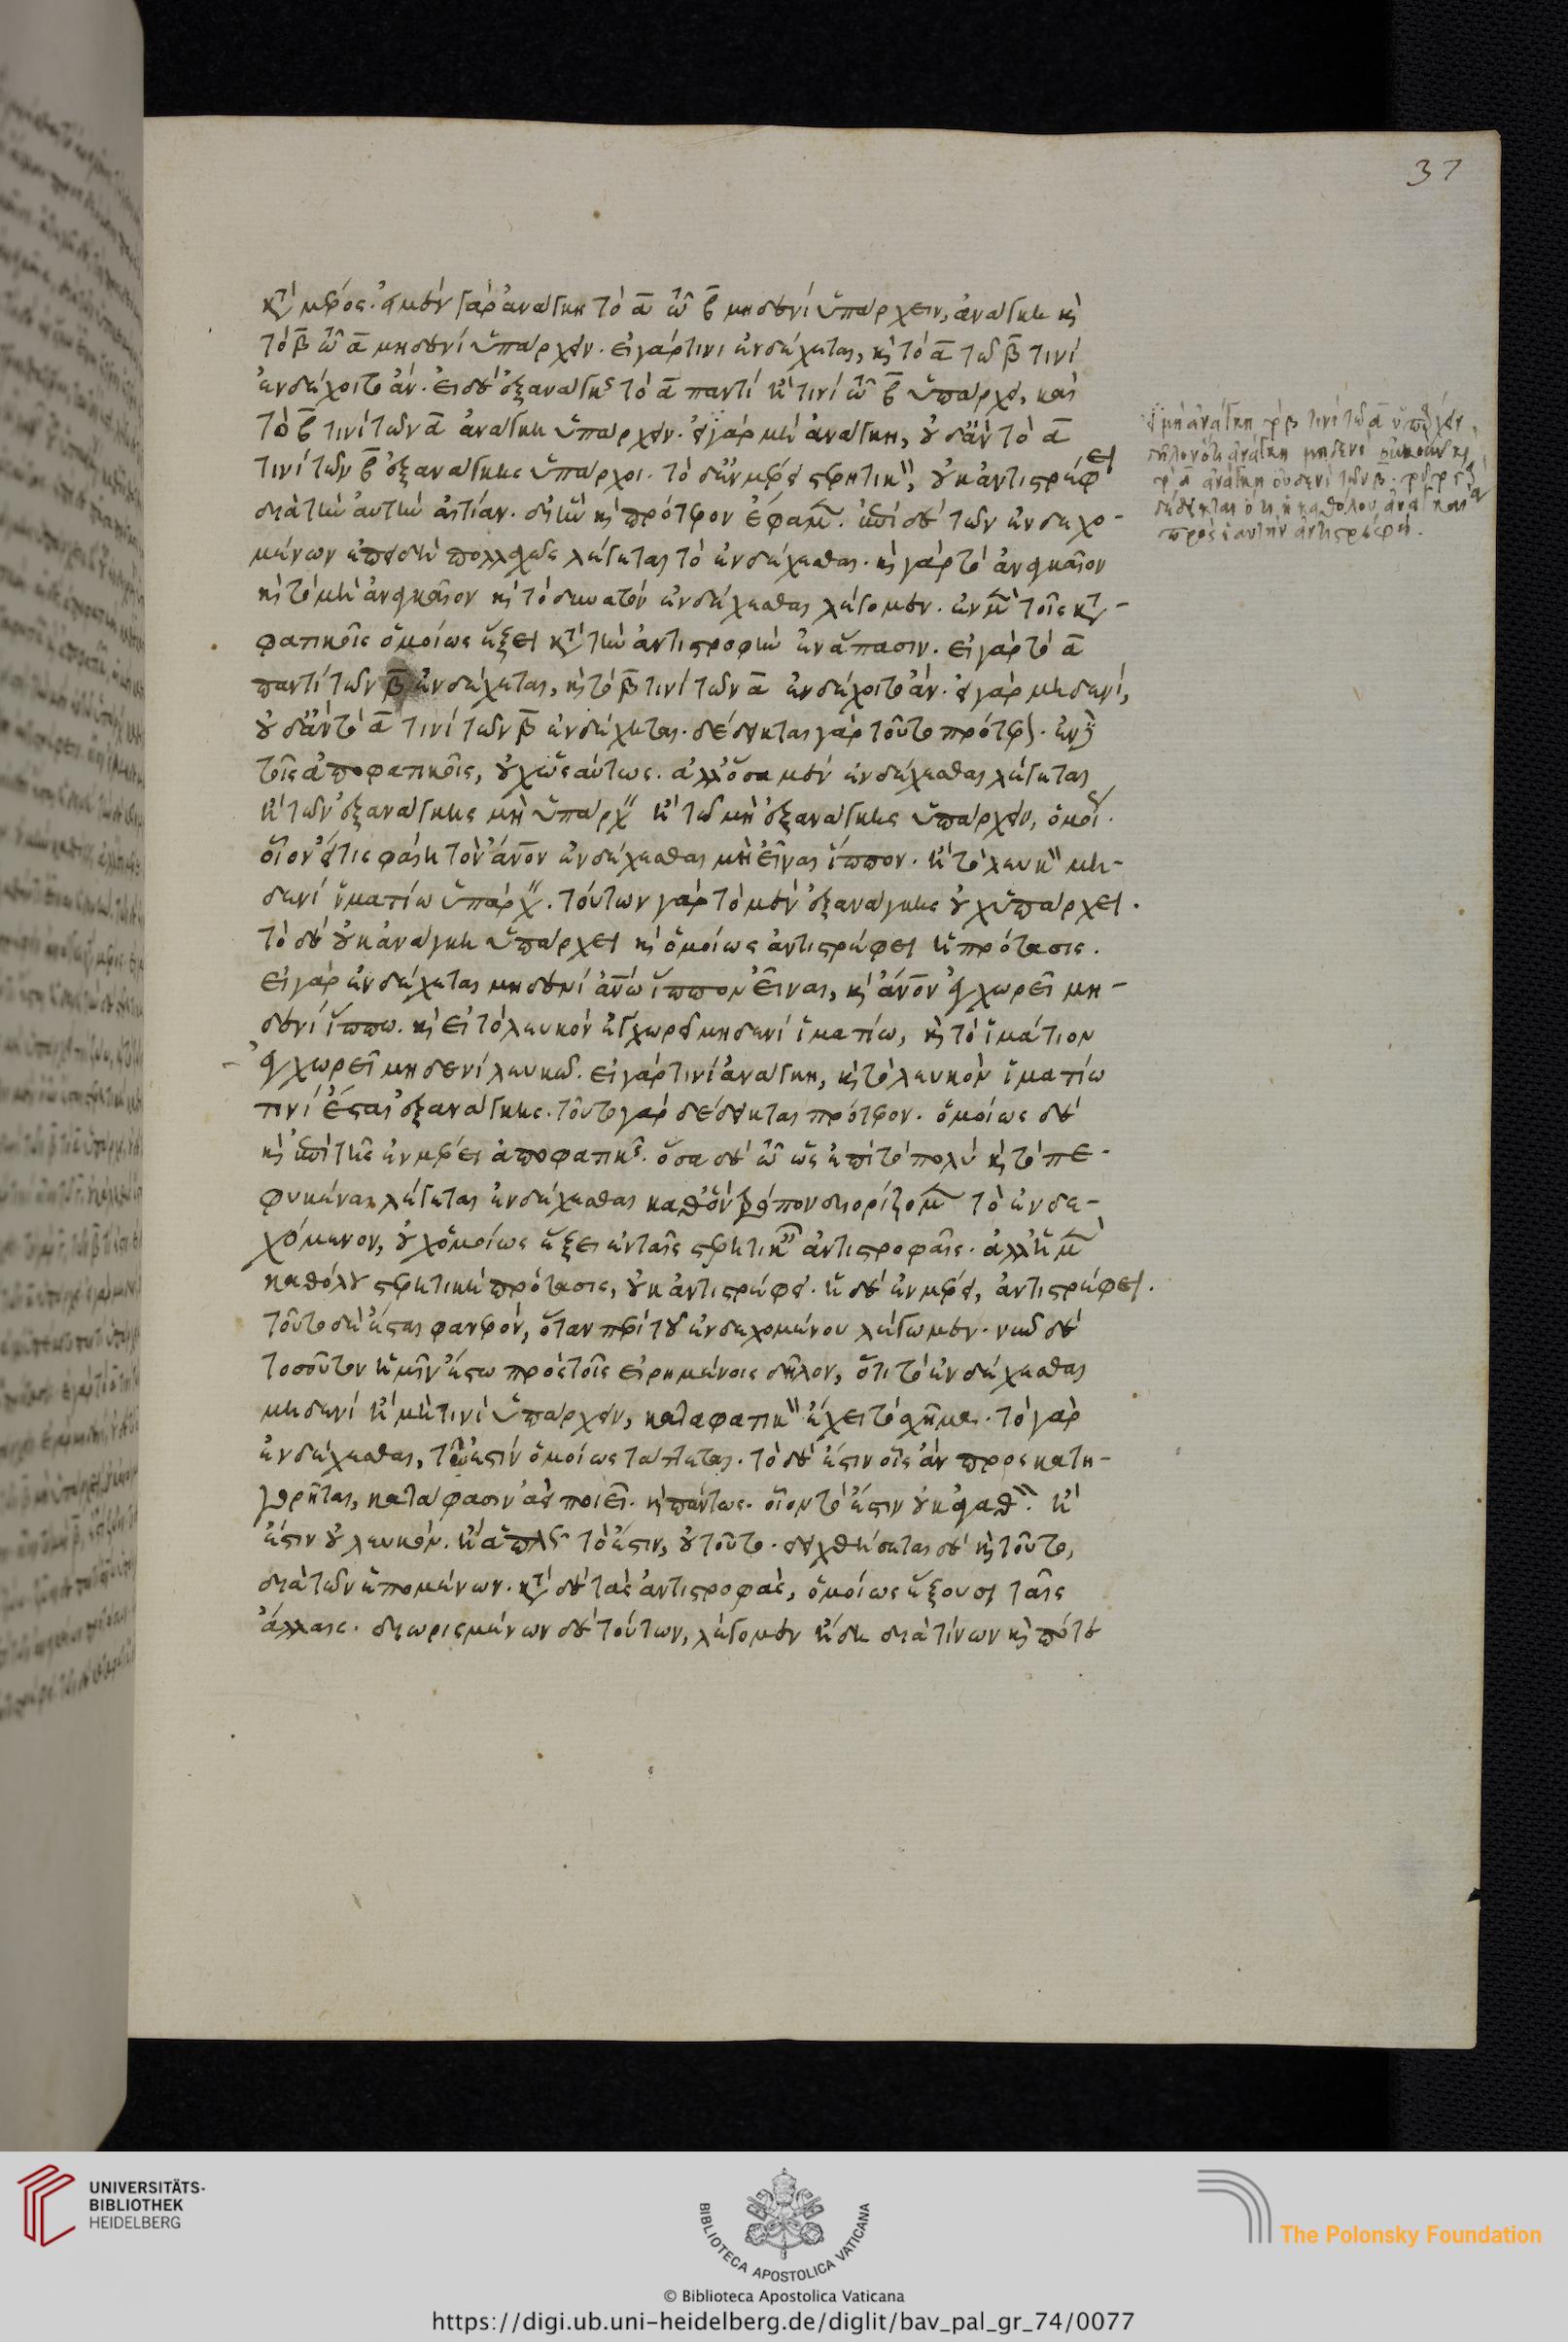 37
κατὰ μέρος. εἰ μὲν γὰρ ἀνάγκη τὸ α̅ τῶ β̅ μηδενὶ ὑπάρχειν, ἀνάγκη καὶ
τὸ β̅ τῶ α̅ μηδενὶ ὑπάρχειν. εἰ γάρ τινι ἐνδέχεται, καὶ τὸ α̅ τῶ β̅ τινὶ
ἐνδέχοιτο ἄν. εἰ δὲ ἐξανάγκης τὸ α̅ παντὶ ἢ τινὶ τῶ β̅ ὑπάρχει, καὶ
τὸ β̅ τινὶ τῶν α̅ ἀνάγκη ὑπάρχειν. εἰ γὰρ μὴ ἀνάγκη, οὐδ' ἂν τὸ α̅
τινὶ τῶν β̅ ἐξανάγκης ὑπάρχοι. τὸ δ' ἐν μέρει στερητικὸν, οὐκ ἀντιστρέφει
διὰ τὴν αὐτὴν αἰτίαν. δι' ἣν καὶ πρότερον ἔφαμεν. ἐπὶ δὲ τῶν ἐνδεχο-
μένων ἐπειδὴ πολλαχῶς λέγεται τὸ ἐνδέχεσθαι. καὶ γὰρ τὸ ἀναγκαῖον
καὶ τὸ μὴ ἀναγκαῖον καὶ τὸ δυνατὸν ἐνδέχεσθαι λέγομεν. ἐν μὲν τοῖς κατα-
φατικοῖς ὁμοίως ἕξει κατὰ τὴν ἀντιστροφὴν ἐν ἅπασιν. εἰ γὰρ τὸ α̅
παντὶ τῶν β̅ ἐνδέχεται, καὶ τὸ β̅ τινὶ τῶν α̅ ἐνδέχοιτο ἄν. εἰ γὰρ μηδενὶ,
οὐδ' ἂν τὸ α̅ τινὶ τῶν β̅ ἐνδέχεται. δέδεικται γὰρ τοῦτο πρότερον. ἐν δὲ
τοῖς ἀποφατικοῖς, οὐχ ὡσαύτως. ἀλλ' ὅσα μὲν ἐνδέχεσθαι λέγεται
ἢ τῶν ἐξανάγκης μὴ ὑπάρχειν ἢ τῶ μὴ ἐξανάγκης ὑπάρχειν, ὁμοίως.
οἷον εἴ τις φαίη τὸν ἄν̅ον ἐνδέχεσθαι μὴ εἶναι ἵππον. ἢ τὸ λευκὸν μη-
δενὶ ἱματίω ὑπάρχειν. τούτων γὰρ τὸ μὲν ἐξανάγκης οὐχ ὑπάρχει.
τὸ δὲ οὐκ ἀνάγκη ὑπάρχει καὶ ὁμοίως ἀντιστρέφει ἡ πρότασις.
εἰ γὰρ ἐνδέχεται μηδενὶ ἀν̅ω ἵππον εἶναι, καὶ ἄν̅ον ἐγχωρεῖ μη-
δενὶ ἵππω. καὶ εἰ τὸ λευκὸν ἐγχωρεῖ μηδενὶ ἱματίω, καὶ τὸ ἱμάτιον
ἐγχωρεῖ μηδενὶ λευκῶ. εἰ γὰρ τινὶ ἀνάγκη, καὶ τὸ λευκὸν ἱματίω
τινὶ ἔσται ἐξανάγκης. τοῦτο γὰρ δέδεικται πρότερον. ὁμοίως δὲ
καὶ ἐπὶ τῆς ἐν μέρει ἀποφατικῆς. ὅσα δὲ τῶ ὡς ἐπὶ τὸ πολὺ καὶ τὸ πε-
φυκέναι λέγεται ἐνδέχεσθαι καθ' ὃν τρόπον διορίζομεν τὸ ἐνδε-
χόμενον, οὐχ ὁμοίως ἕξει ἐν ταῖς στερητικαῖς ἀντιστροφαῖς. ἀλλ' ἡ μὲν
καθόλου στερητικὴ πρότασις, οὐκ ἀντιστρέφει. ἡ δὲ ἐν μέρει, ἀντιστρέφει.
τοῦτο δὲ ἔσται φανερὸν, ὅταν περὶ τοῦ ἐνδεχομένου λέγωμεν. νῦν δὲ
τοσοῦτον ἡμῖν ἔστω πρὸς τοῖς εἰρημένοις δῆλον, ὅτι τὸ ἐνδέχεσθαι
μηδενὶ ἢ μὴ τινὶ ὑπάρχειν, καταφατικὸν ἔχει τὸ σχῆμα. τὸ γὰρ
ἐνδέχεσθαι, τῶ ἐστὶν ὁμοίως τάττεται. τὸ δὲ ἐστὶν οἷς ἂν προσκατη-
γορῆται, κατάφασιν ἀεὶ ποιεῖ. καὶ πάντως. οἷον τὸ ἐστὶν οὐκ ἀγαθὸν. ἢ
ἐστὶν οὐ λευκὸν. ἢ ἁπλῶς τὸ ἐστὶν, οὐ τοῦτο. δειχθήσεται δὲ καὶ τοῦτο,
διὰ τῶν ἑπομένων. κατὰ δὲ τὰς ἀντιστροφὰς, ὁμοίως ἕξουσι ταῖς
ἄλλαις. διωρισμένων δὲ τούτων, λέγομεν ἤδη διὰ τίνων καὶ πότε
εἰ μὴ ἀνάγκη τὸ β τινὶ τῶ α̅ ὑπάρχειν,
δηλονότι ἀνάγκη μηδενί οὐκοῦν καὶ
τὸ α̅ ἀνάγκη οὐδενὶ τῶν β̅.
δέδεικται ὅτι ἡ καθόλου ἀναγκαία
πρὸς ἑαυτὴν ἀντιστρέφει.
UNIVERSITÄTS-
BIBLIOTHEK
HEIDELBERG
BIBLIOTECA APOSTOLICA VATICANA
The Polonsky Foundation
© Biblioteca Apostolica Vaticana
https://digi.ub.uni-heidelberg.de/diglit/bav_pal_gr_74/0077